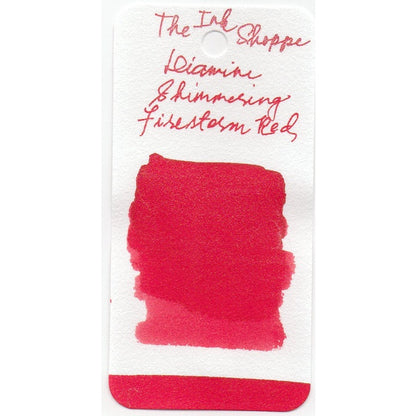 The Ink Shoppe
Diamine
Shimmering
Firestorm Red